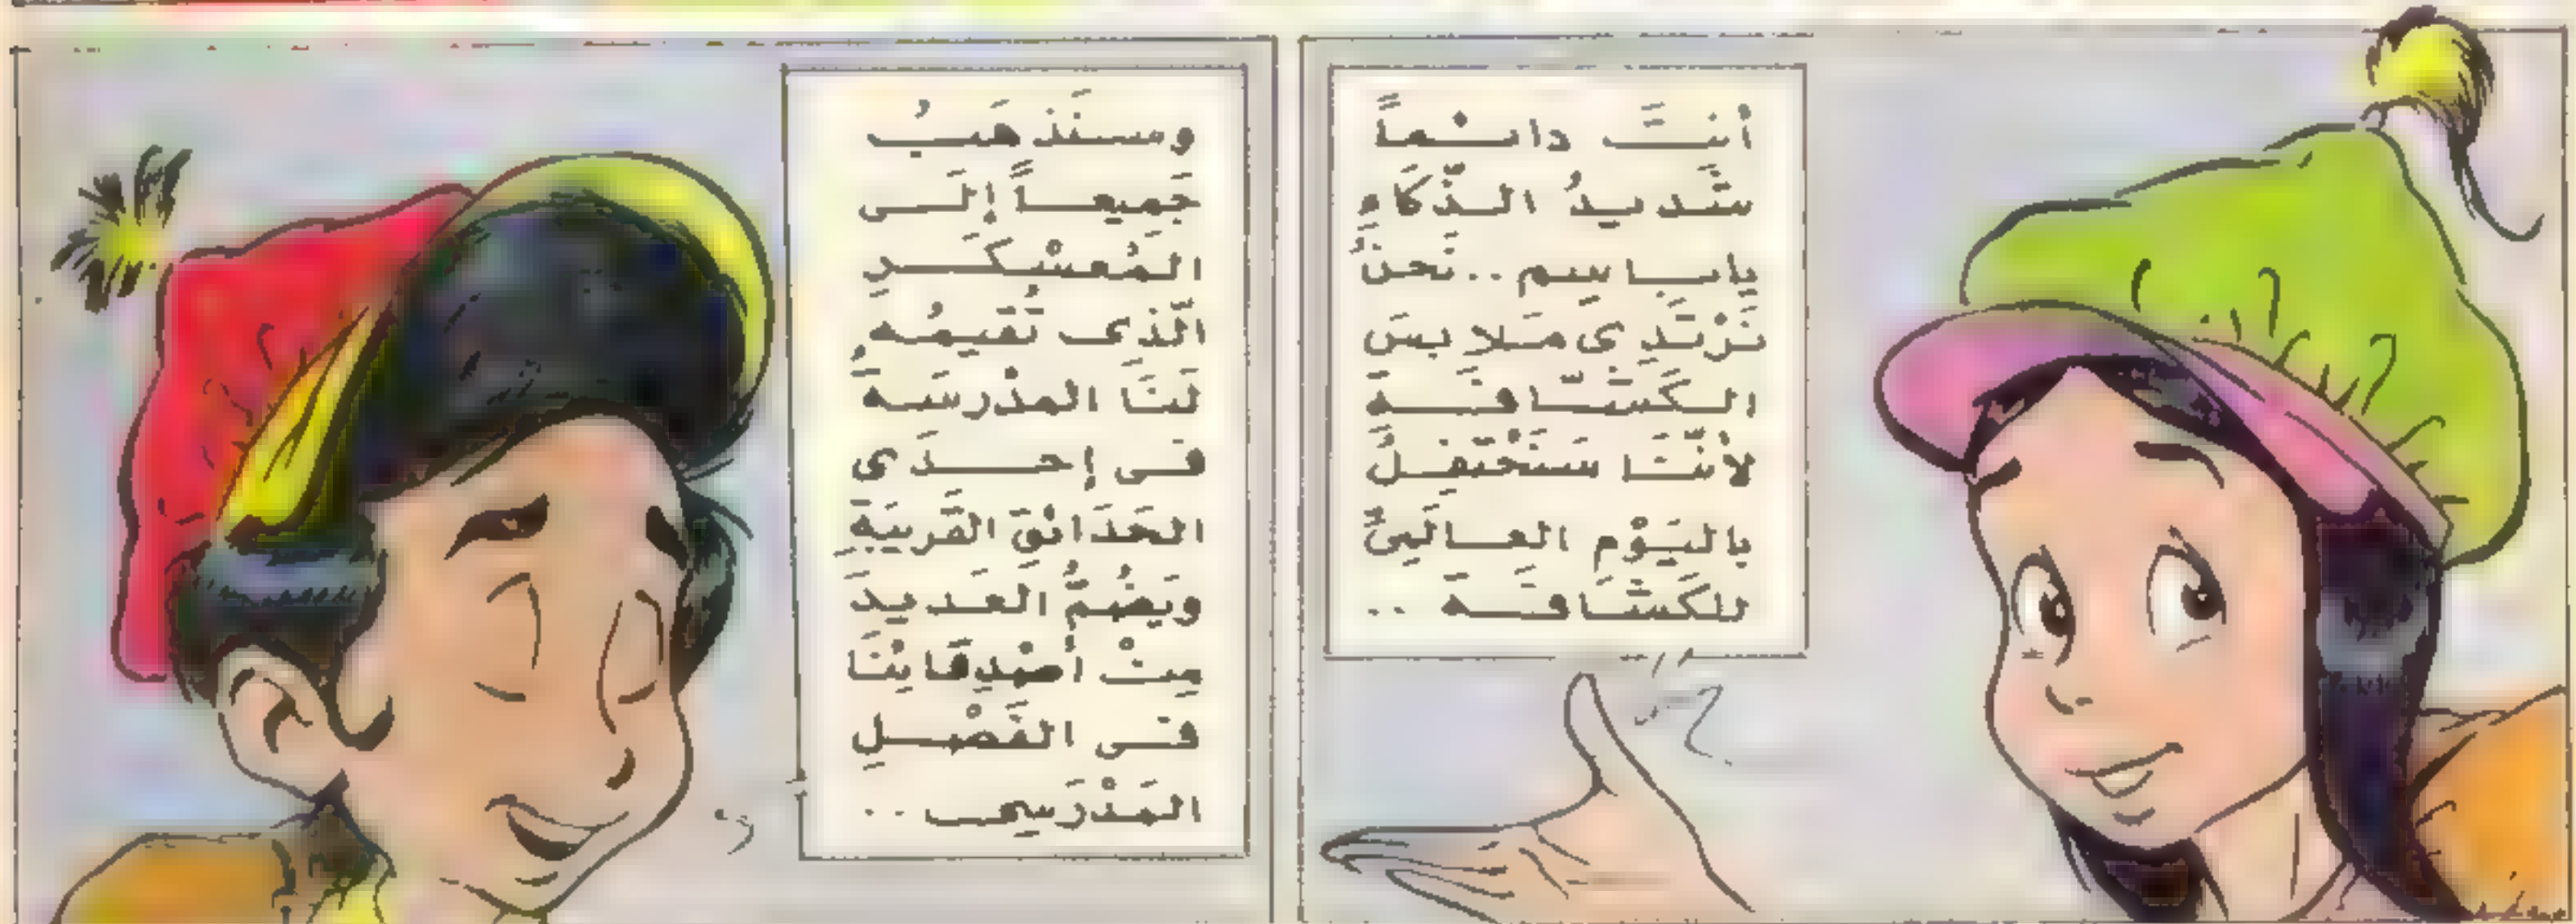 أنتَ دائماً
شَديدُ الذّكَاءِ
ياباسِم .. نَحنُ
نَرْتَدِى مَلابسَ
الكَشّافَةِ
لأنّنَا سَنَحْتَفِلُ
بِاليَوْمِ العالَمِىِّ
للكَشّافَةِ ..
وسنَذهَبُ
جَمِيعاً إلَى
المُعسْكَرِ
الّذِى تُقيمُه
لَنَا المدْرسَةُ
فى إحدَى
الحَدَائقِ القَريبَةِ
ويَضُمُّ العَديدَ
مِنْ أصْدِقَائِنَا
فى الفَصْلِ
المَدْرَسِى ..